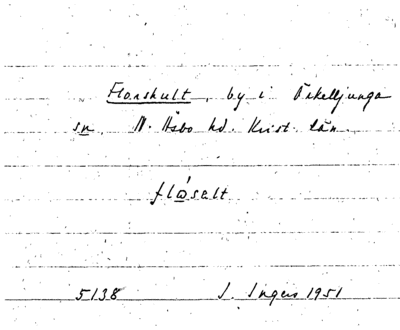 Florshult, by i Örkelljunga
sn N. Åsbo hd. Krist. län.
flǻsælt
5138 I. Ingers 1951